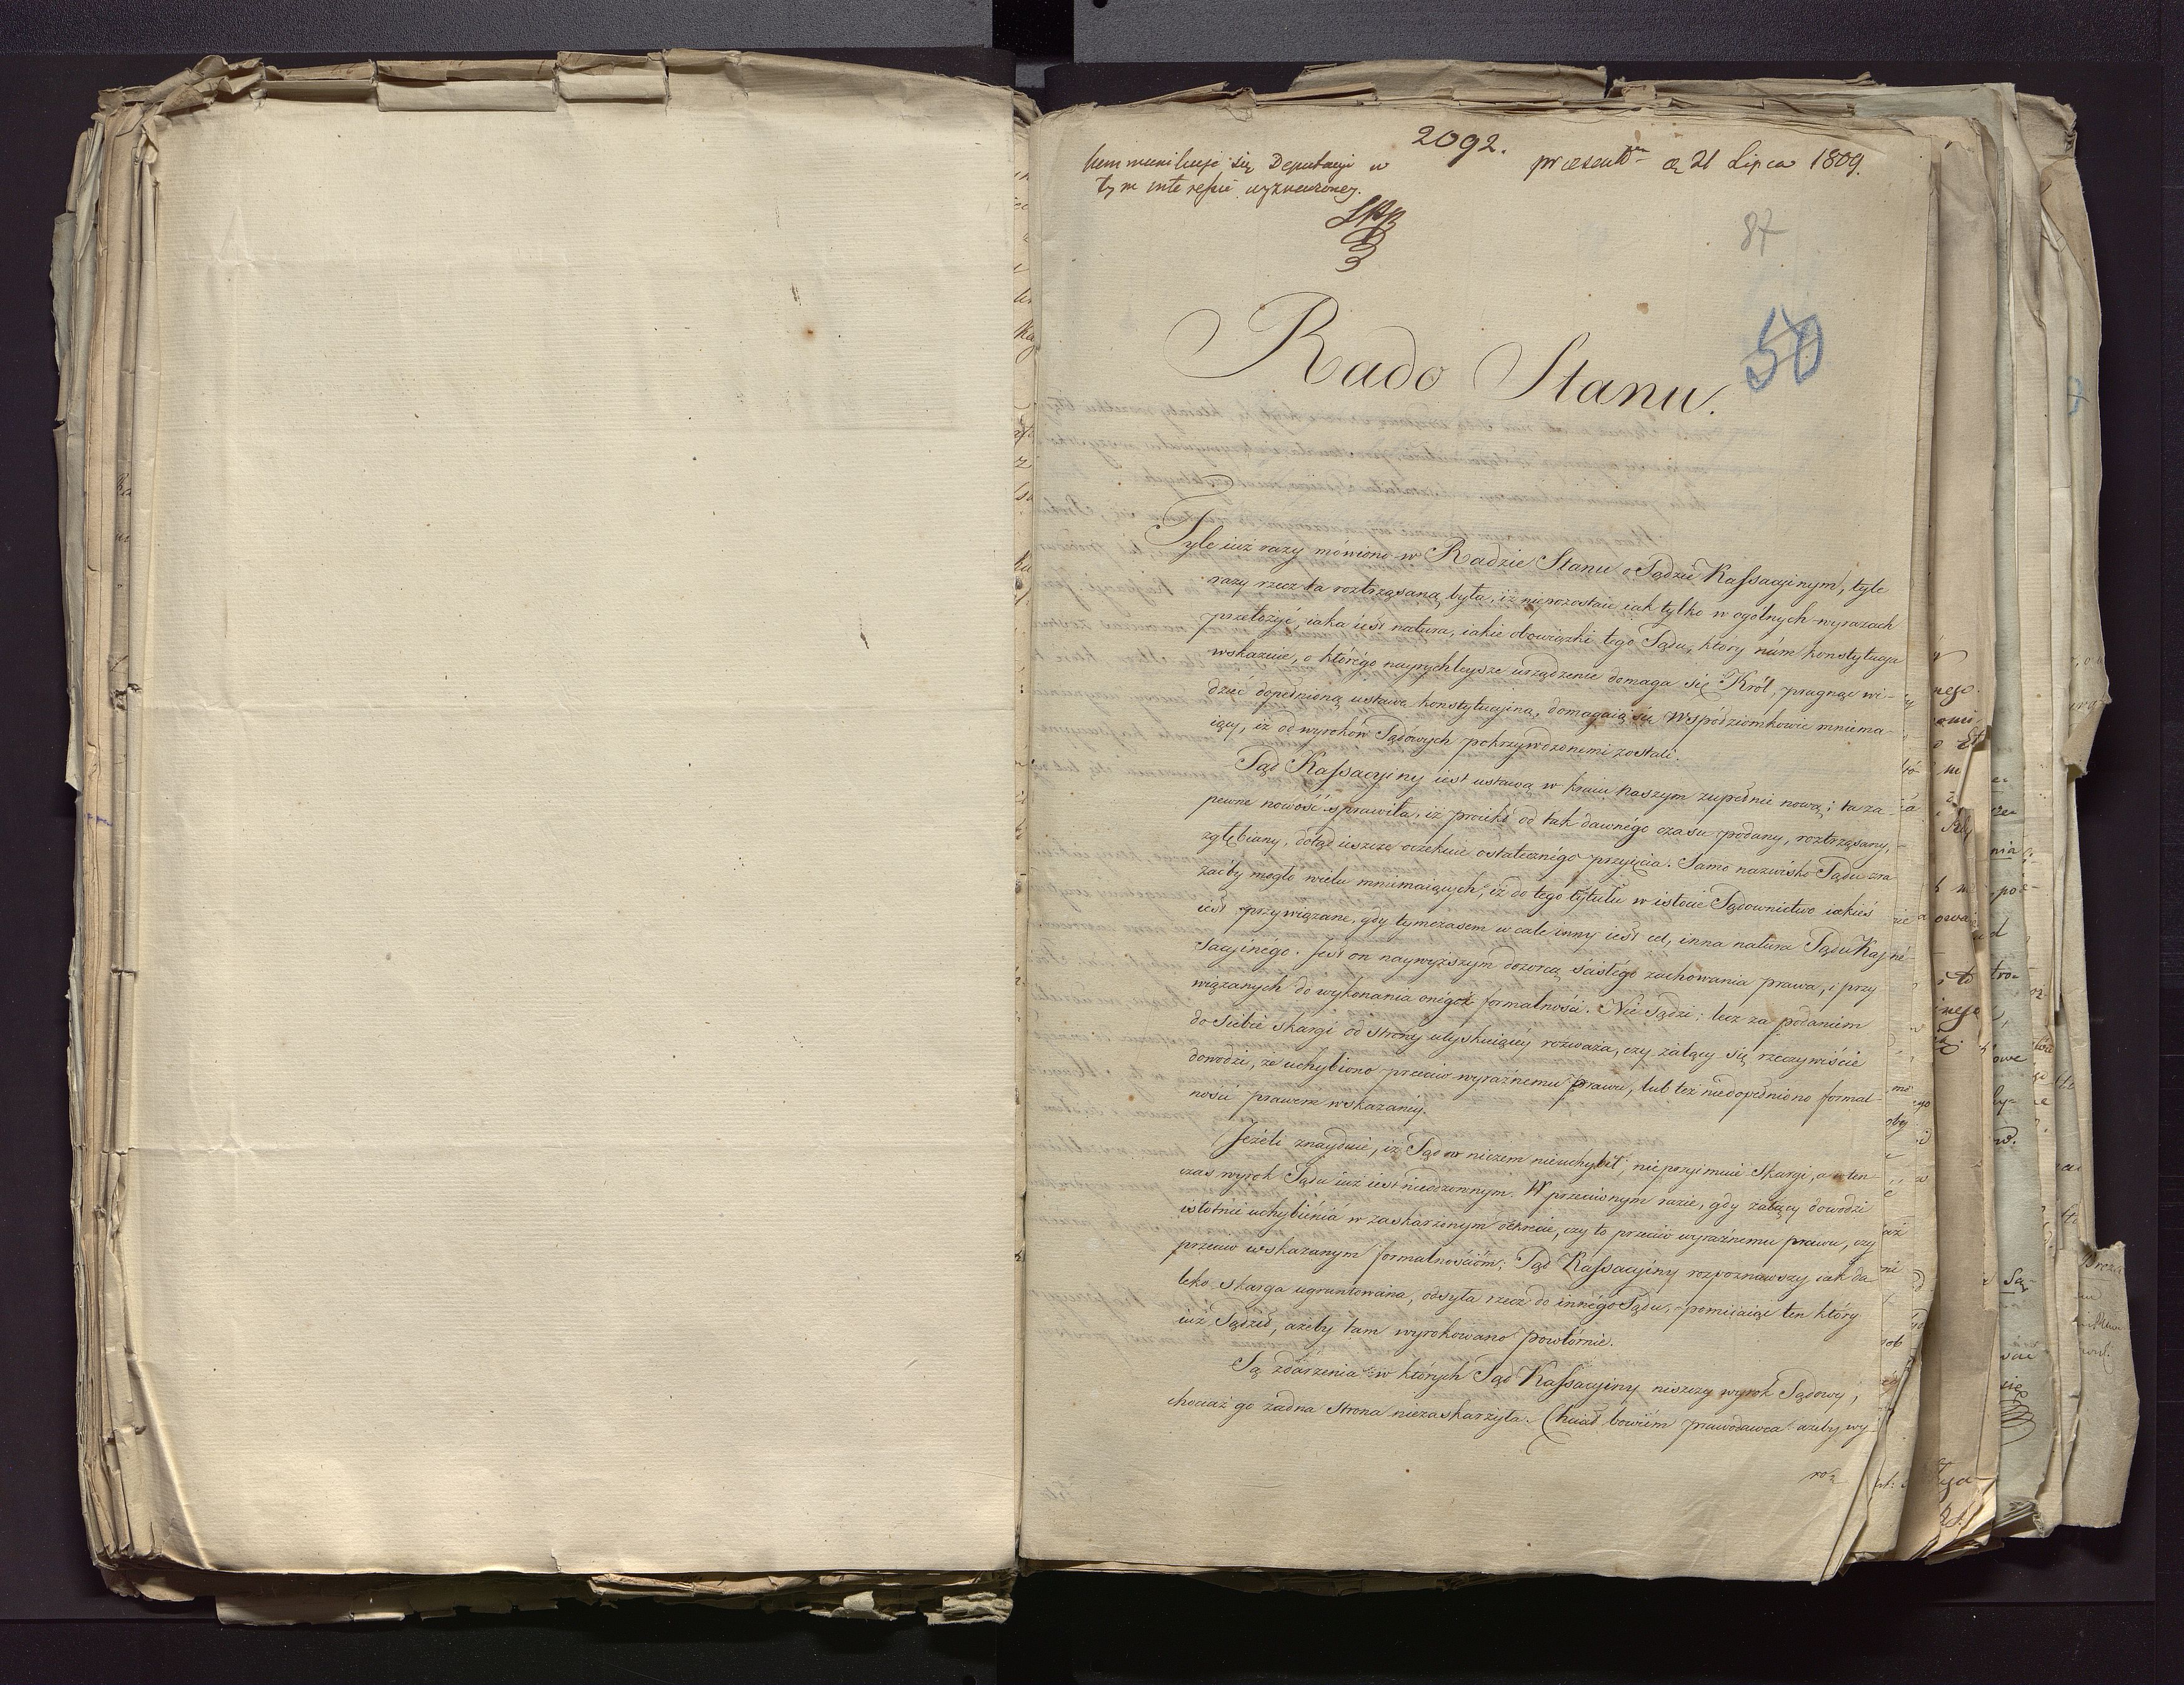 2092.
kommunikuje się Deputacyi w
tym interesie wyznaczoney.
praesent. d. 21 Lipca 1809.
87
50
Rado Stanu.
Tyle iuż razy mówiono w Radzie Stanu o Sądzie Kassacyinym, tyle
razy rzecz ta roztrząsaną była, iż niepozostaie iak tylko w ogólnych wyrazach
przełożyć, iaka iest natura, iakie obowiązki tego Sądu, który nám konstytucya
wskazuie, o którégo nayrychleysze urządzenie domaga się Król, pragnąc wi-
dzieć dopełnioną ustawę konstytucyiną, domagaią się Współziomkowie mniema-
iący, iż od wyroków Sądowych pokrzywdzonemi zostali.
Sąd Kassacyiny iest ustawą w kraiu naszym zupełnie nową; ta za-
pewne nowość sprawiła, iż proiekt od tak dawnégo czasu podany, roztrząsany,
zgłębiany, dotąd ieszcze oczekuie ostatecznégo przyięcia. Samo nazwisko Sądu zra
zać by mogło wielu mniemaiących, iż do tego tytułu w istocie Sądownictwo iakieś
iest przywiązane, gdy tymczasem wcale inny iest cel, inna natura Sądu Kas-
sacyinégo. Jest on naywyższym dozorcą ścisłégo zachowania prawa, i przy
wiązanych do wykonania onégoż formalności. Nie Sądzi; lecz za podaniem
do siebie skargi od strony utyskuiącéy rozważa, czy żalący się rzeczywiście
dowodzi, że uchybiono przeciw wyraźnemu prawu, lub też niedopełniono formal-
ności prawem wskazanéy.
Jeżeli znayduie, iż Sąd w niczem nieuchybił; nieprzyimuie skargi, a wten-
czas wyrok Sądu iuż iest niedzownym. W przeciwnym razie, gdy żalący dowodzi
istotnie uchybiénia w zaskarżonym dekrecie, czy to przeciw wyraźnemu prawu, czy
przeciw wskazanym formalnościom; Sąd Kassacyiny rozpoznawszy iak da
leko skarga ugruntowana, odsyła rzecz do innégo Sądu, pomiiaiąc ten który
iuż Sądził, ażeby tam wyrokowano powtórnie.
Są zdarzenia w których Sąd Kassacyiny niszczy wyrok Sądowy,
chociaż go żadna strona niezaskarżyła. Chciał bowiém prawodawca ażeby wy-
ro-